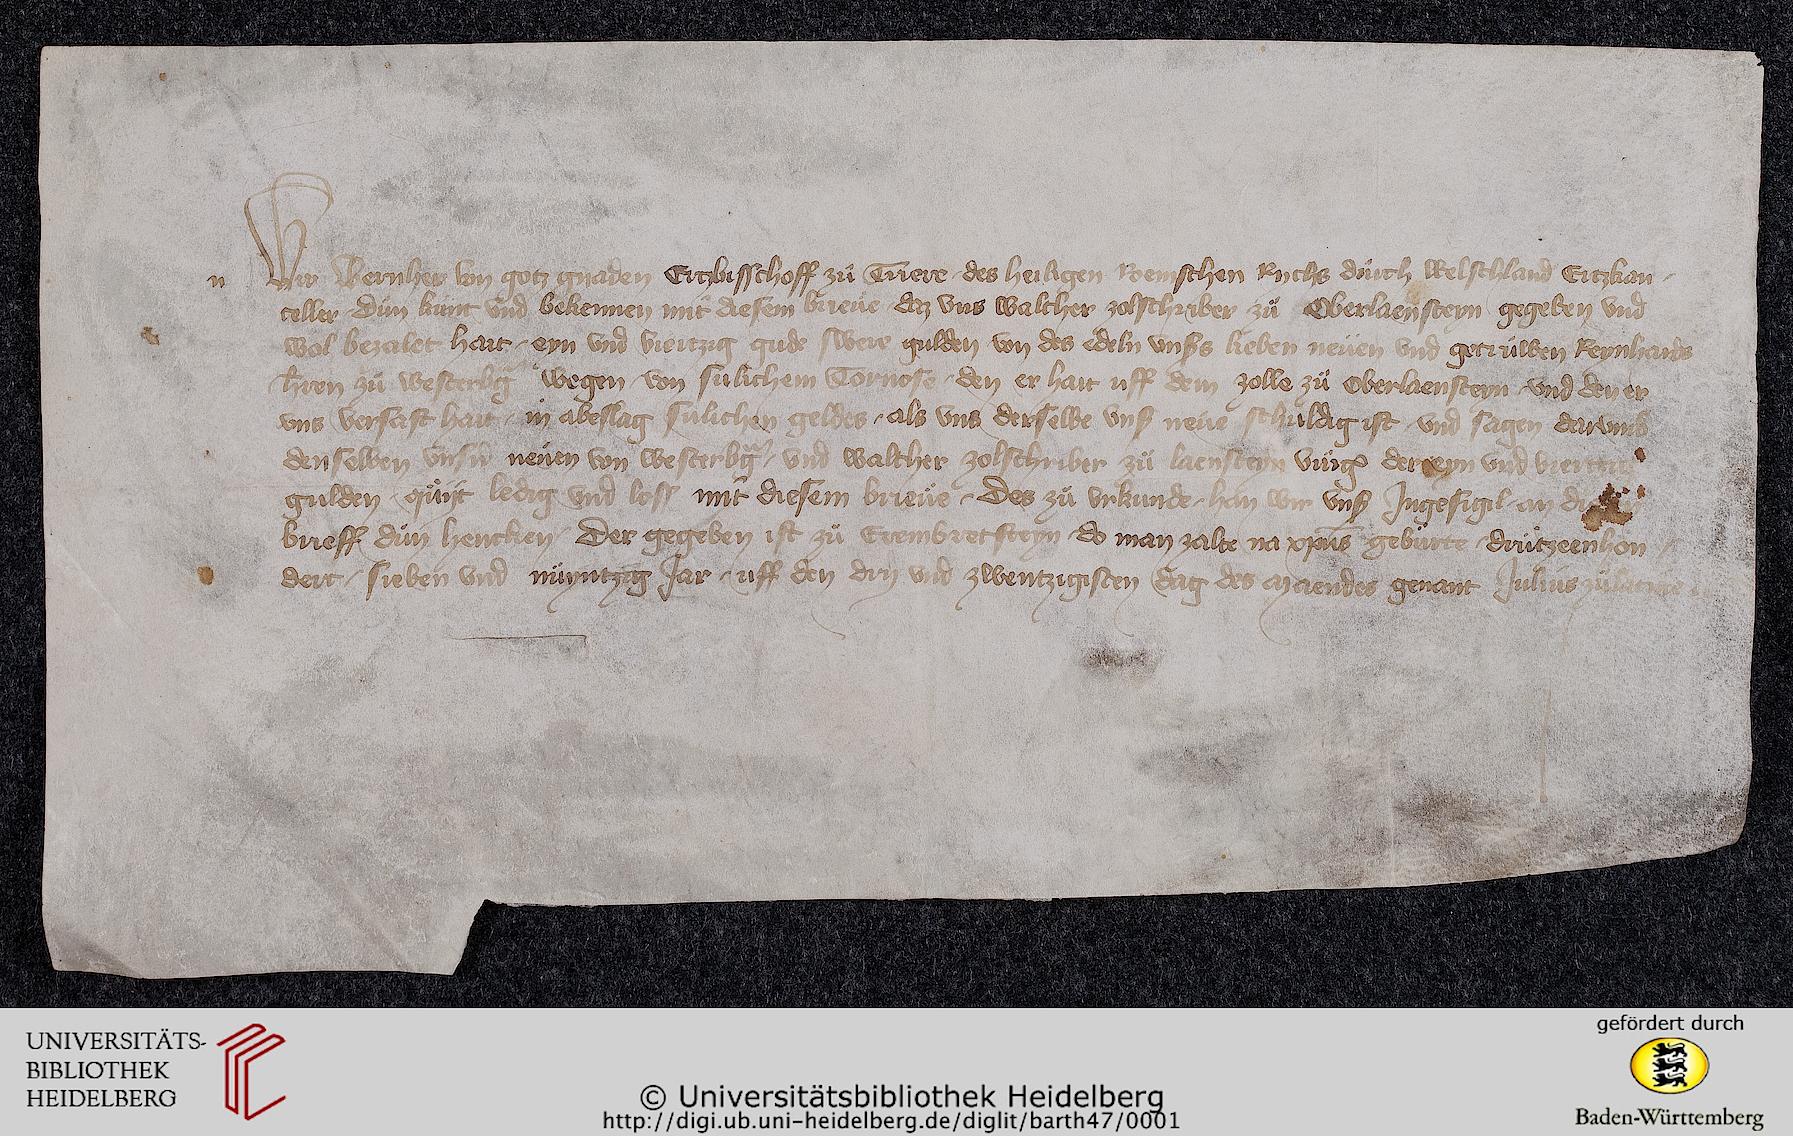 Wir Wernher von gotz gnaden Ertzbisschoff zů Triere des heiligen Roemschen Richs durch Welschland Ertzkan-
celler Důn kunt und bekennen mit diesem brieue daz vns walther zolschriber zů Oberlaensteyn gegeben vnd
wol bezalet hait eyn vnd viertzig gude swere gulden von des edeln vnß lieben neuen vnd getruwen Reynhards
hren zů westerbg wegen von sulichem Tornose den er hait uff dem zolle zů oberlaensteyn vnd den er
vns versast hait in abeslag sulichen geldes als vns derselbe vnß neue schuldig ist vnd sagen darumb
denselben vnsn neuen von westerbg vnd walther zolschriber zů laensteyn der eyn vnd viertzig
gulden quijt ledig vnd loss mit diesem brieue Des zů vrkunde han wir vnß Ingesigil an
brieff důn hencken Der gegeben ist zů Erembretsteyn do man zalte na xpus geburte drutzeenhon
dert sieben vnd nuyntzig Jar uff den dry vnd zwentzigisten dag des maendes genant Julius zulatine
UNIVERSITÄTS-
BIBLIOTHEK
HEIDELBERG
gefördert durch
Baden-Württemberg
© Universitätsbibliothek Heidelberg
http://digi.ub.uni-heidelberg.de/diglit/barth47/0001